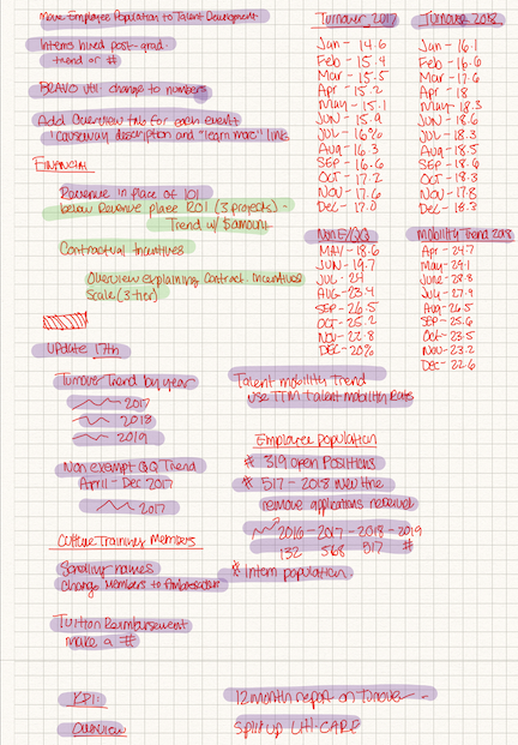 Move Employee Population to Talent Development
Interns hired post-grad.
trend or #
BRAVO util. change to numbers
Add Overview tab for each event
"causeway description and "learn more" link
FINANCIAL
Revenue in place of 101
below Revenue place ROI (3 projects) -
Trend w/ $ amount
Contractual Incentives
Overview explaining Contract. Incentives
Scale (3-tier)
Update 17th
Turnover Trend by year
2017
2018
2019
Non exempt QQ Trend
April - Dec 2017
2017
Culture Training Members
Sending names
Change Members to Ambassadors
Tuition Reimbursement
make a #
KPI:
Overview
Turnover 2017
Jan - 14.6
Feb - 15.4
Mar - 15.5
Apr - 15.2
May - 15.1
JUN - 15.9
JUL - 16%
Aug - 16.3
SEP - 16.6
OCT - 17.2
NOV - 17.6
Dec - 17.0
Turnover 2018
Jan - 16.1
Feb - 16.6
Mar - 17.6
Apr - 18
May - 18.3
JUN - 18.6
JUL - 18.3
Aug - 18.5
SEP - 18.6
OCT - 18.3
NOV - 17.8
Dec - 18.3
Non E/QQ
MAY - 18.6
JUN - 19.7
JUL - 24
AUG - 23.4
SEP - 26.5
OCT - 25.2
NOV - 22.8
DEC - 20%
Mobility Trend 2018
Apr - 24.7
May - 29.1
June - 28.8
July - 27.9
Aug - 26.5
SEP - 25.6
Oct - 23.5
Nov - 23.2
Dec - 22.6
Talent mobility Trend
USE TTM talent mobility Rate
Employee Population
# 319 open Positions
# 517 - 2018 New Hire
remove applications received
2016 - 2017 - 2018 - 2019
132 568 517 #
# Intern population.
12 month report on Turnover -
Split up LTH-CARE